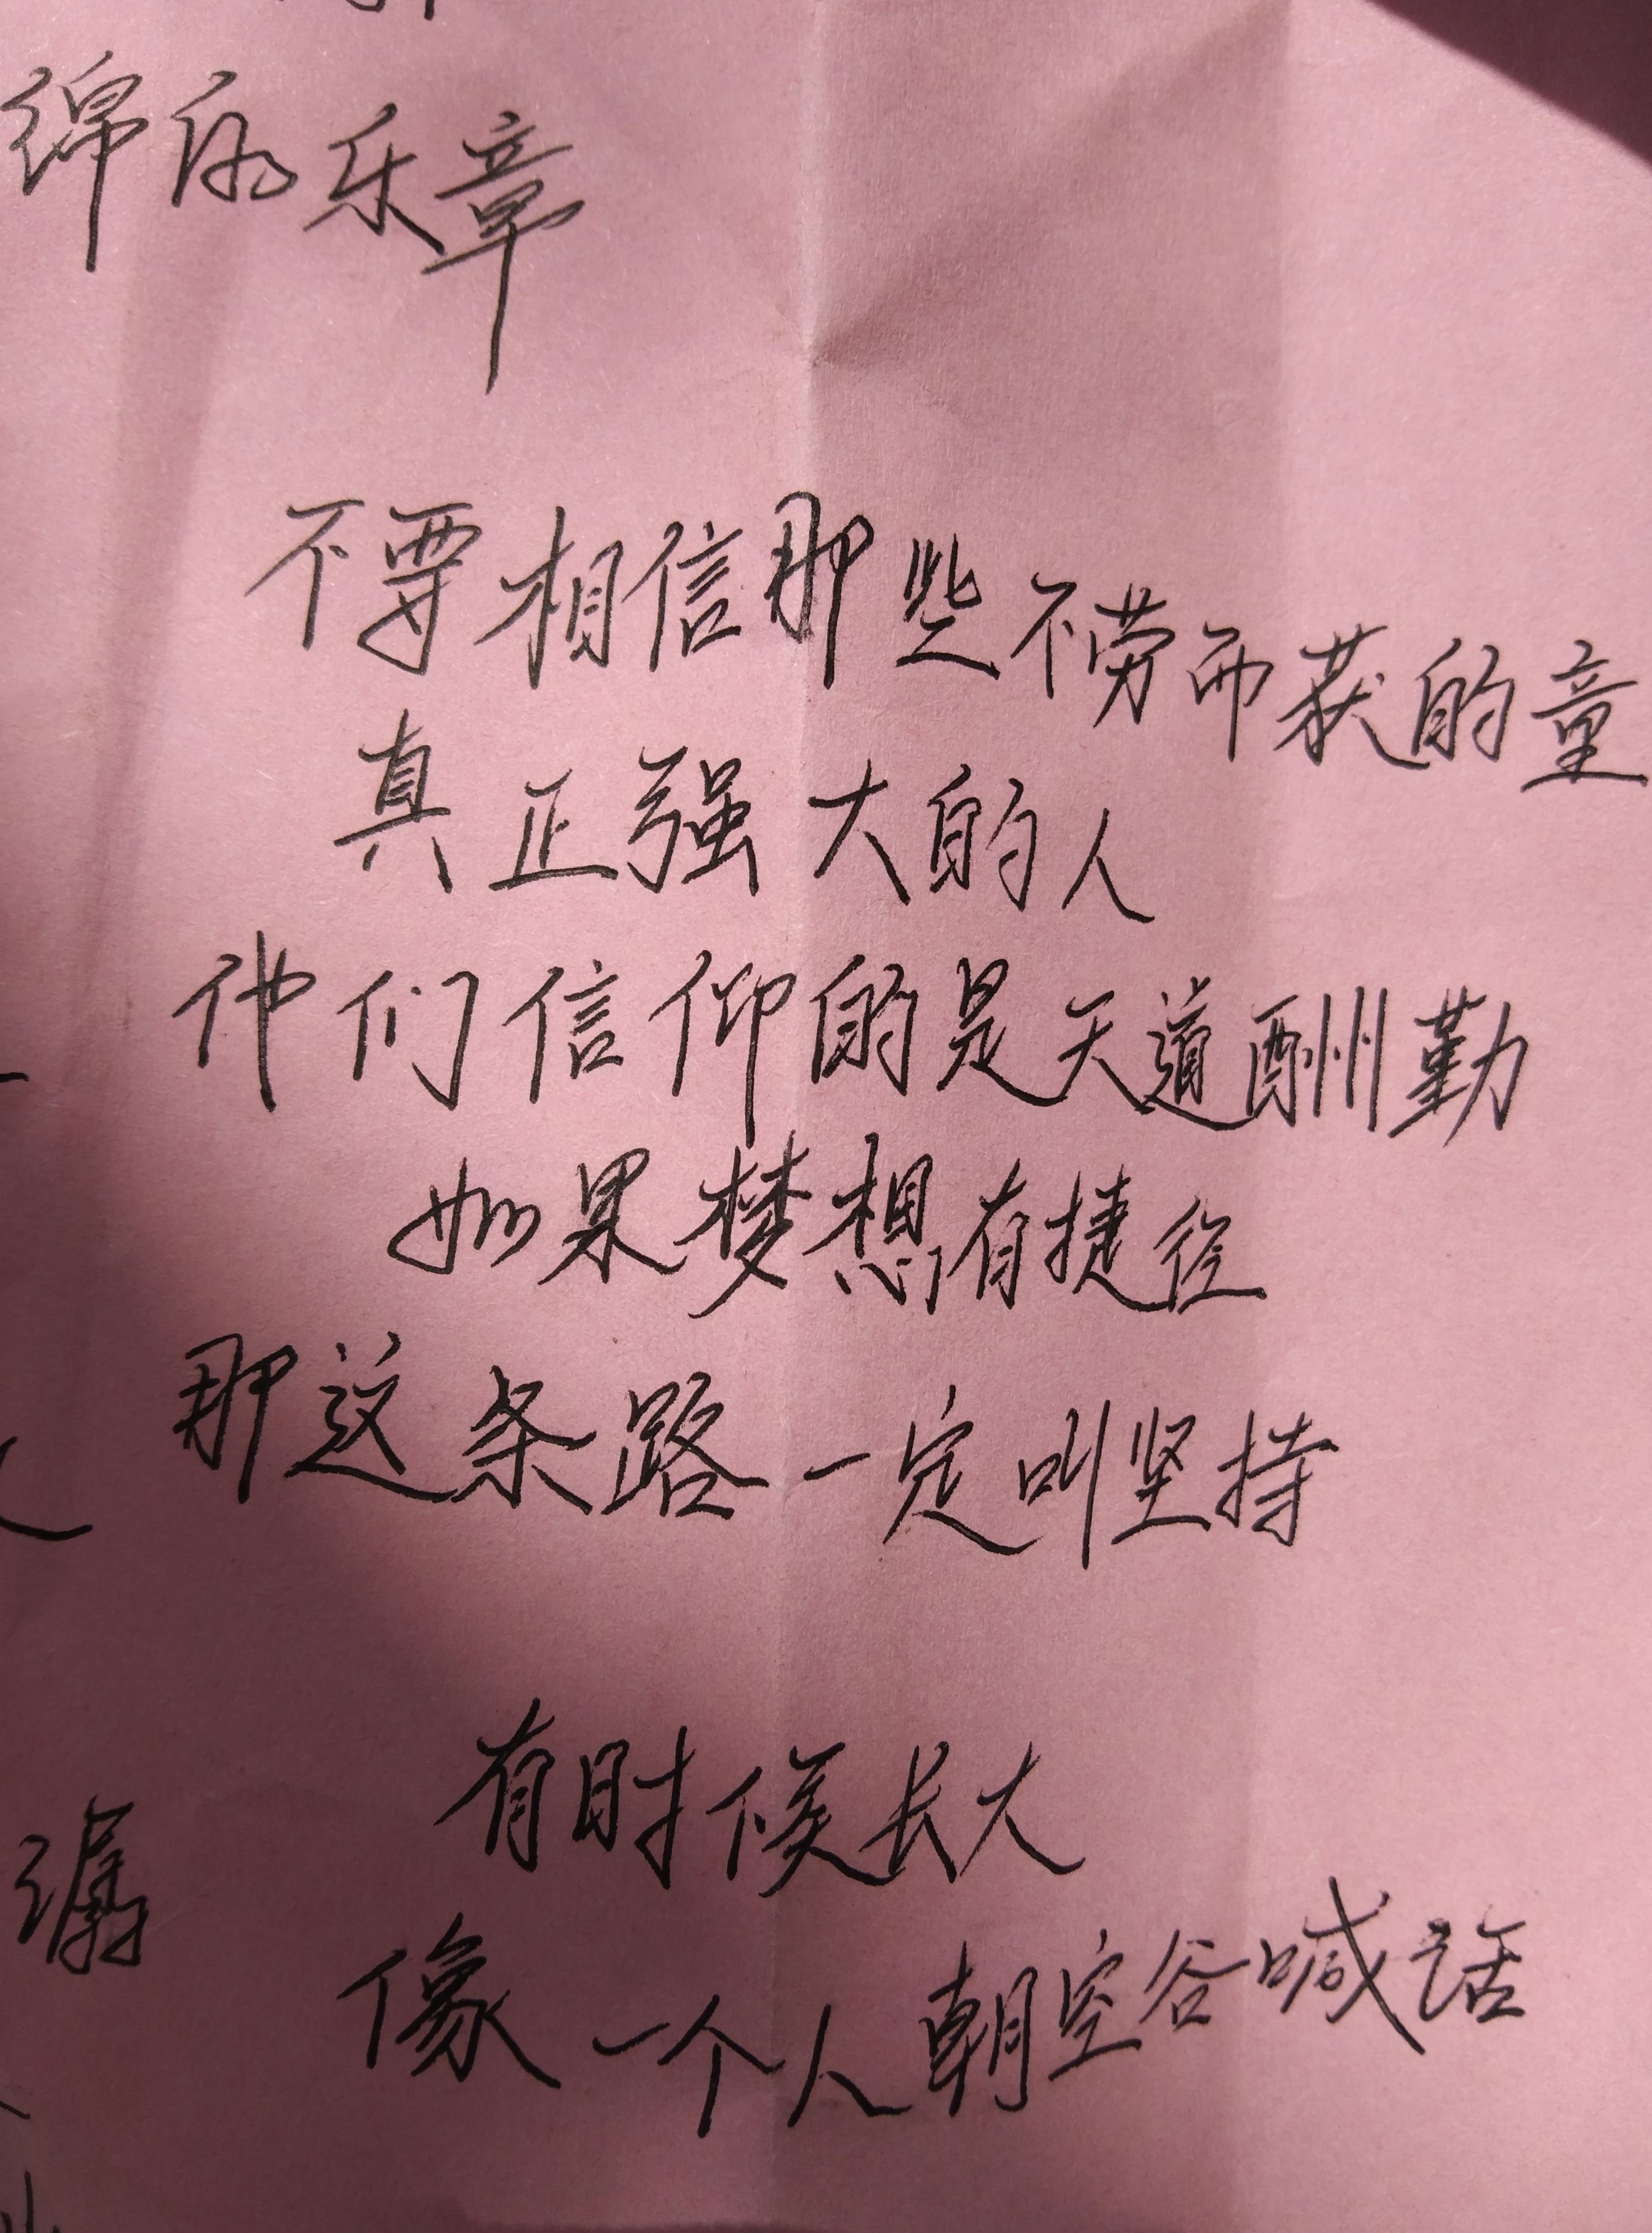 绵的乐章
不要相信那些不劳而获的童
真正强大的人
他们信仰的是天道酬勤
如果梦想有捷径
那这条路一定叫坚持
有时候长大
像一个人朝空谷喊话